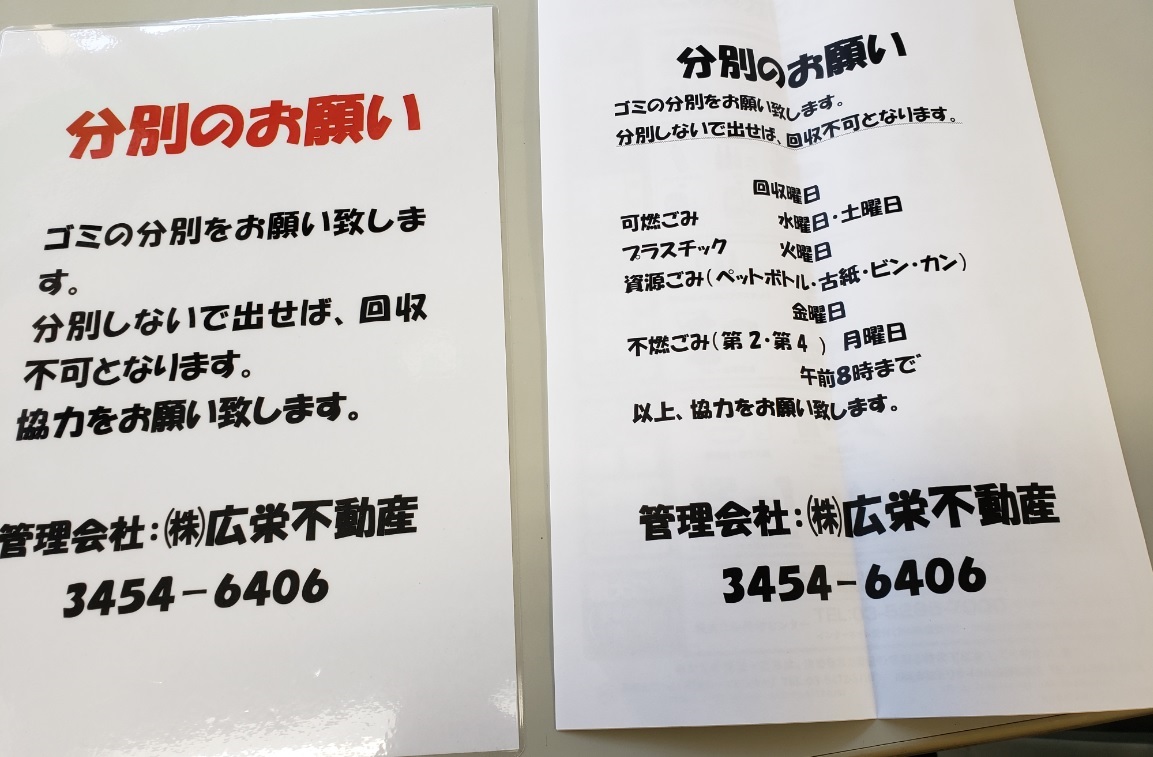 分別のお願い
ゴミの分別をお願い致しま
す。
分別しないで出せば、回収
不可となります。
協力をお願い致します。
管理会社：㈱広栄不動産
3454－6406
分別のお願い
ゴミの分別をお願い致します。
分別しないで出せば、回収不可となります。
回収曜日
可燃ごみ 水曜日・土曜日
プラスチック 火曜日
資源ごみ（ペットボトル・古紙・ビン・カン）
金曜日
不燃ごみ（第２・第４ ） 月曜日
午前8時まで
以上、協力をお願い致します。
管理会社：㈱広栄不動産
3454－6406